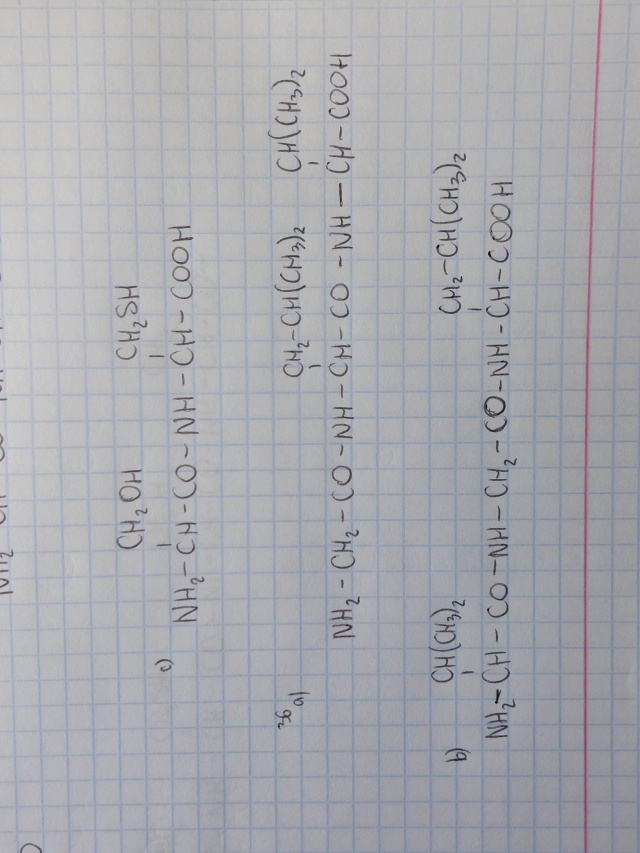 CH₂OH CH₂SH
c) NH₂-CH-CO-NH-CH-COOH
36 a) CH₂-CH(CH₃)₂ CH(CH₃)₂
NH₂-CH₂-CO-NH-CH-CO-NH-CH-COOH
b) CH(CH₃)₂ CH₂-CH(CH₃)₂
NH₂-CH-CO-NH-CH₂-CO-NH-CH-COOH